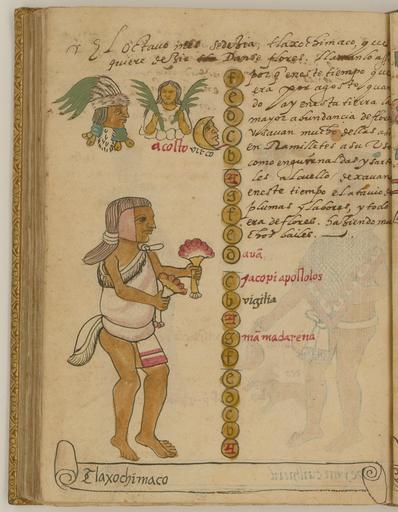 El octavo mes se dezia, tlaxochimaco, que
quiere dezir Danse flores. llamanlo asi
porq en este tiempo que
era por agosto, quan
do ay en esta tierra la
mayor abundancia de flores
usavan mucho dellas asi
en Ramilletes a su uso
como en guirnaldas y sarta
les al cuello dexavan
en este tiempo el atavio de
plumas y labores, y todo
era de flores. haziendo mu
chos bailes.
acolto virco
f
e
d
c
b
A
g
f
e
d
c
b
A
g
f
e
d
c
b
A
Jacopi apostolos
vigilia
ma madarena
Tlaxochimaco